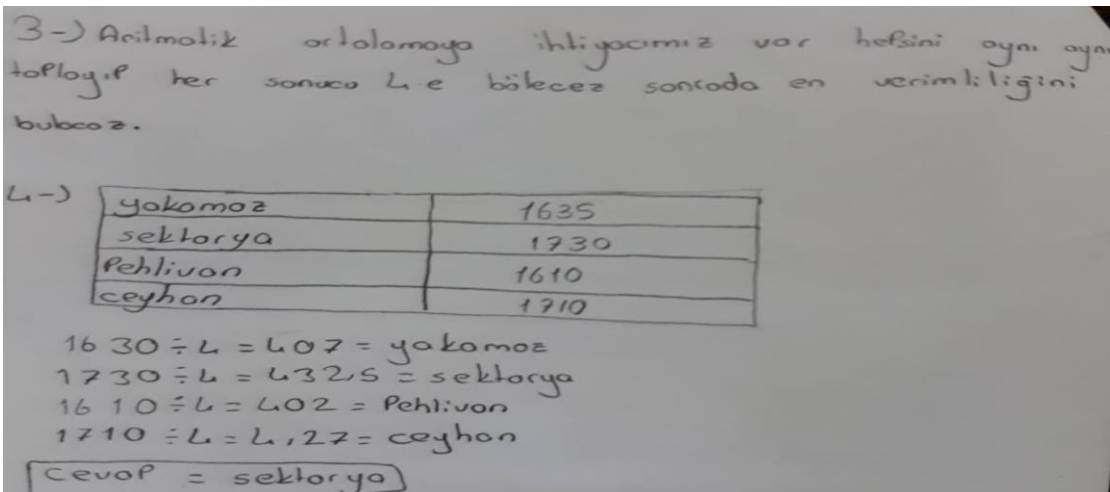 3-) Aritmatik ortalamaya ihtiyacımız var hepsini aynı aynı
toplayıp her sonuca 4 e bölecez sonrada en verimliliğini
bulcaz.
4-) yakamoz 1635
sektorya 1730
Pehlivan 1610
ceyhan 1710
1630 ÷ 4 = 407 = yakamoz
1730 ÷ 4 = 432,5 = sektorya
1610 ÷ 4 = 402 = Pehlivan
1710 ÷ 4 = 4,27 = ceyhan
cevap = sektorya